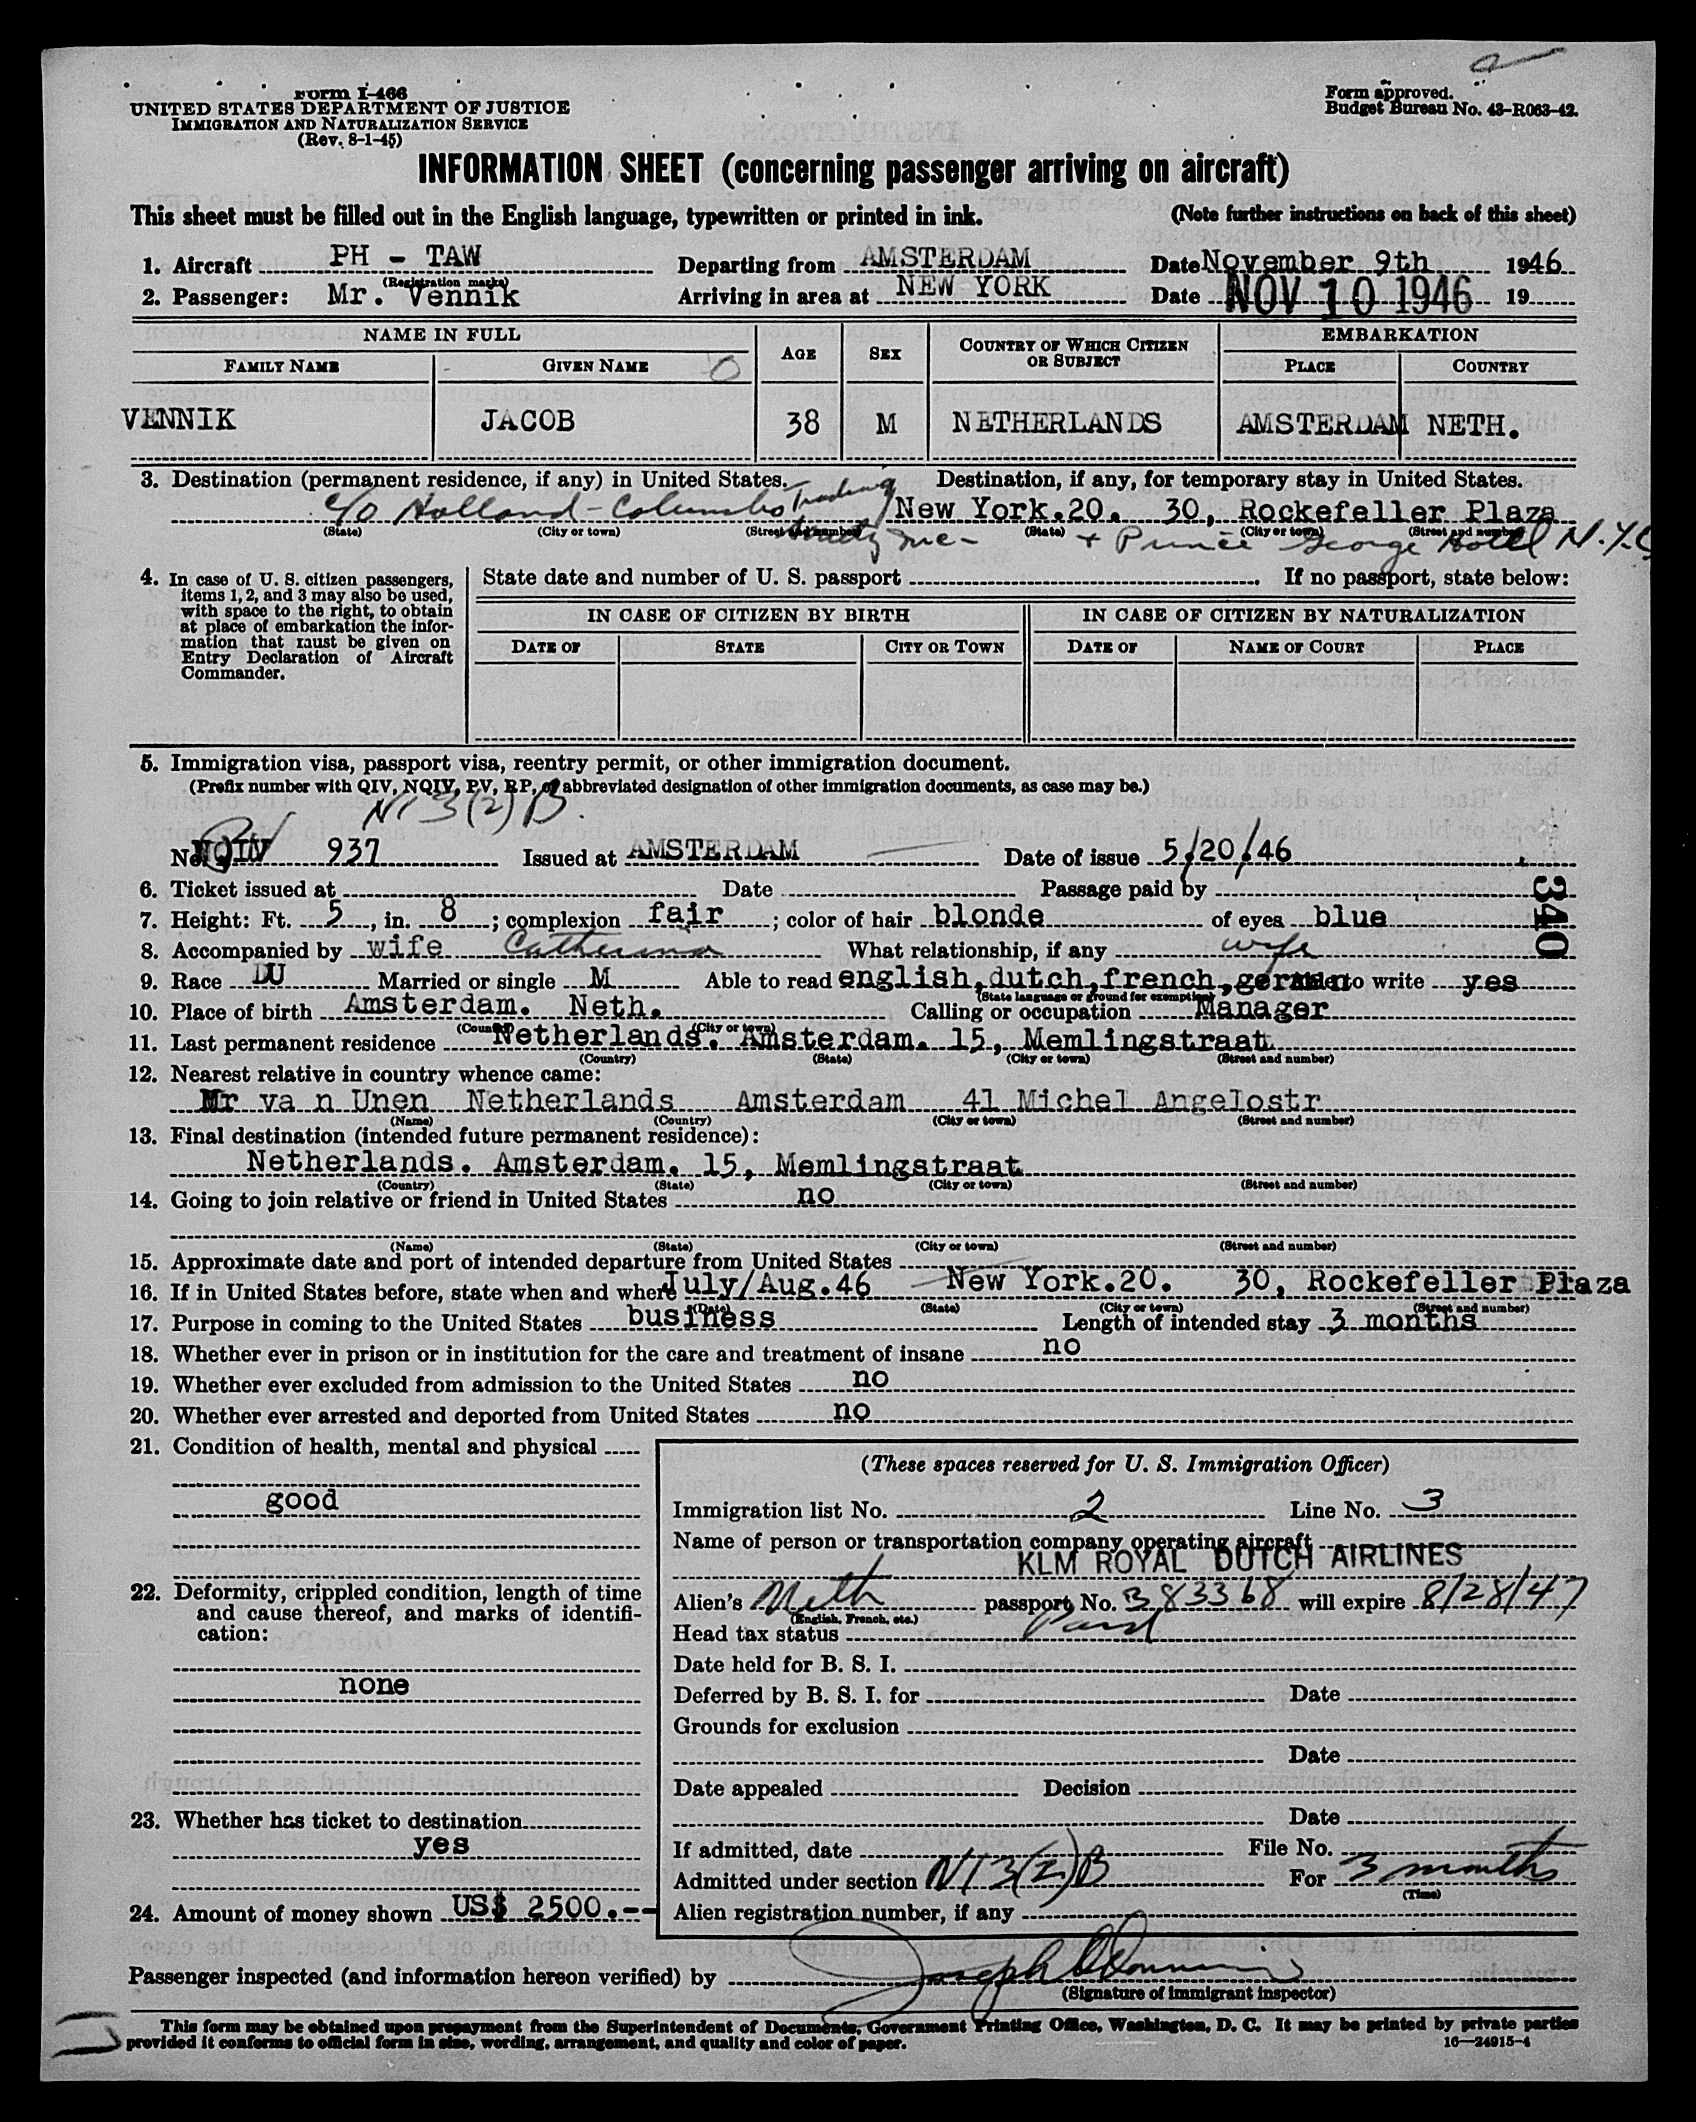 Form I-466
UNITED STATES DEPARTMENT OF JUSTICE
IMMIGRATION AND NATURALIZATION SERVICE
(Rev. 8-1-45)
Form approved.
Budget Bureau No. 43-R063-42.
INFORMATION SHEET (concerning passenger arriving on aircraft)
This sheet must be filled out in the English language, typewritten or printed in ink. (Note further instructions on back of this sheet)
1. Aircraft PH - TAW Departing from AMSTERDAM Date November 9th 1946
(Registration marks)
2. Passenger: Mr. Vennik Arriving in area at NEW YORK Date NOV 10 1946 19
NAME IN FULL AGE SEX COUNTRY OF WHICH CITIZEN OR SUBJECT EMBARKATION
FAMILY NAME GIVEN NAME PLACE COUNTRY
VENNIK JACOB 38 M NETHERLANDS AMSTERDAM NETH.
3. Destination (permanent residence, if any) in United States. Destination, if any, for temporary stay in United States.
c/o Holland-Columbo Trading New York.20. 30, Rockefeller Plaza
(State) (City or town) (Street and number) (State) (City or town) (Street and number)
Inc- + Prince George Hotel N.Y.C
4. In case of U. S. citizen passengers, items 1, 2, and 3 may also be used, with space to the right, to obtain at place of embarkation the information that must be given on Entry Declaration of Aircraft Commander.
State date and number of U. S. passport If no passport, state below:
IN CASE OF CITIZEN BY BIRTH IN CASE OF CITIZEN BY NATURALIZATION
DATE OF STATE CITY OR TOWN DATE OF NAME OF COURT PLACE
5. Immigration visa, passport visa, reentry permit, or other immigration document.
(Prefix number with QIV, NQIV, PV, RP, or abbreviated designation of other immigration documents, as case may be.)
NI 3(2) B.
PV
No. NQIV 937 Issued at AMSTERDAM Date of issue 5/20/46
6. Ticket issued at Date Passage paid by
340
7. Height: Ft. 5, in. 8; complexion fair; color of hair blonde of eyes blue
8. Accompanied by wife Catherina What relationship, if any wife
9. Race DU Married or single M Able to read english,dutch,french,german Able to write yes
(State language or ground for exemption)
10. Place of birth Amsterdam. Neth. Calling or occupation Manager
(Country) (City or town)
11. Last permanent residence Netherlands. Amsterdam. 15, Memlingstraat
(Country) (State) (City or town) (Street and number)
12. Nearest relative in country whence came:
Mr va n Unen Netherlands Amsterdam 41 Michel Angelostr
(Name) (Country) (City or town) (Street and number)
13. Final destination (intended future permanent residence):
Netherlands. Amsterdam. 15, Memlingstraat
(Country) (State) (City or town) (Street and number)
14. Going to join relative or friend in United States no
(Name) (State) (City or town) (Street and number)
15. Approximate date and port of intended departure from United States
16. If in United States before, state when and where July/Aug.46 New York.20. 30, Rockefeller Plaza
(Date) (State) (City or town) (Street and number)
17. Purpose in coming to the United States business Length of intended stay 3 months
18. Whether ever in prison or in institution for the care and treatment of insane no
19. Whether ever excluded from admission to the United States no
20. Whether ever arrested and deported from United States no
21. Condition of health, mental and physical
good
22. Deformity, crippled condition, length of time and cause thereof, and marks of identification:
none
23. Whether has ticket to destination
yes
24. Amount of money shown US$ 2500.--
(These spaces reserved for U. S. Immigration Officer)
Immigration list No. 2 Line No. 3
Name of person or transportation company operating aircraft
KLM ROYAL DUTCH AIRLINES
Alien's Neth passport No. B83368 will expire 8/28/47
(English, French, etc.)
Head tax status Paid
Date held for B. S. I.
Deferred by B. S. I. for Date
Grounds for exclusion
Date
Date appealed Decision
Date
If admitted, date File No.
Admitted under section NI 3(2)B For 3 months
(Time)
Alien registration number, if any
Passenger inspected (and information hereon verified) by Joseph
(Signature of immigrant inspector)
This form may be obtained upon prepayment from the Superintendent of Documents, Government Printing Office, Washington, D. C. It may be printed by private parties
provided it conforms to official form in size, wording, arrangement, and quality and color of paper. 16—24915-4